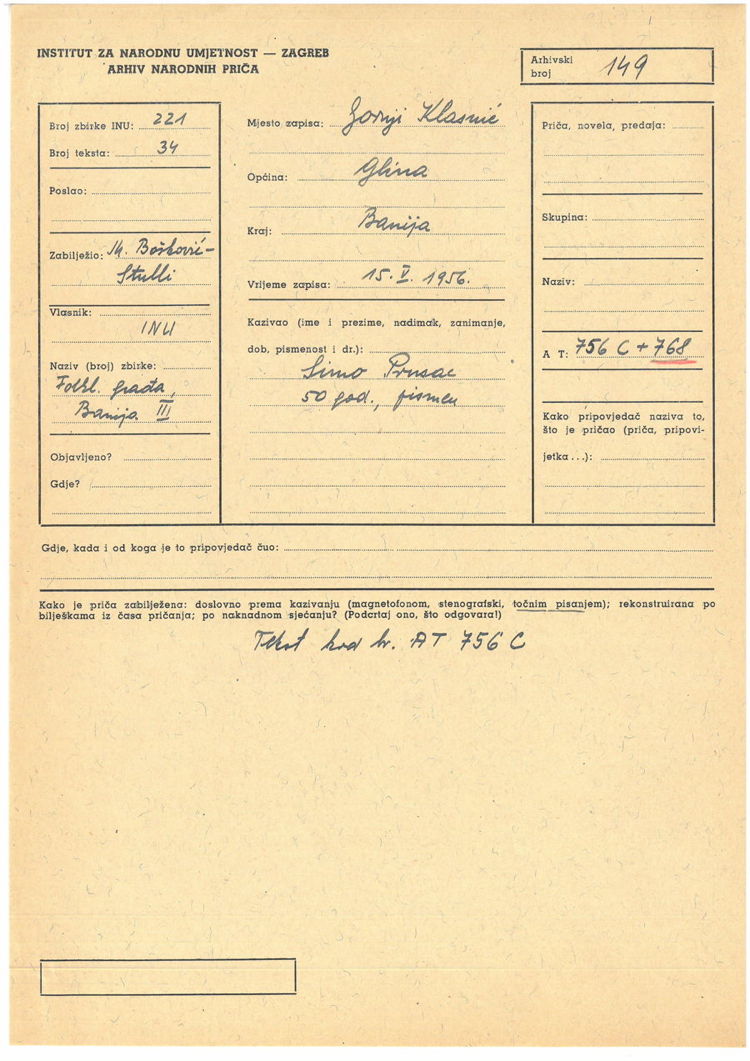 INSTITUT ZA NARODNU UMJETNOST — ZAGREB
ARHIV NARODNIH PRIČA
Arhivski
broj 149
Broj zbirke INU: 221
Broj teksta: 34
Poslao:
Zabilježio: M. Bošković-
Stulli
Vlasnik:
INU
Naziv (broj) zbirke:
Folkl. građa,
Banija III
Objavljeno?
Gdje?
Mjesto zapisa: Gornji Klasnić
Općina: Glina
Kraj: Banija
Vrijeme zapisa: 15. V. 1956.
Kazivao (ime i prezime, nadimak, zanimanje,
dob, pismenost i dr.):
Simo Prusac
50 god., pismen
Priča, novela, predaja:
Skupina:
Naziv:
A T: 756 C + 768
Kako pripovjedač naziva to,
što je pričao (priča, pripovi-
jetka...):
Gdje, kada i od koga je to pripovjedač čuo:
Kako je priča zabilježena: doslovno prema kazivanju (magnetofonom, stenografski, točnim pisanjem); rekonstruirana po
bilješkama iz časa pričanja; po naknadnom sjećanju? (Podcrtaj ono, što odgovara!)
Tekst kod br. AT 756 C